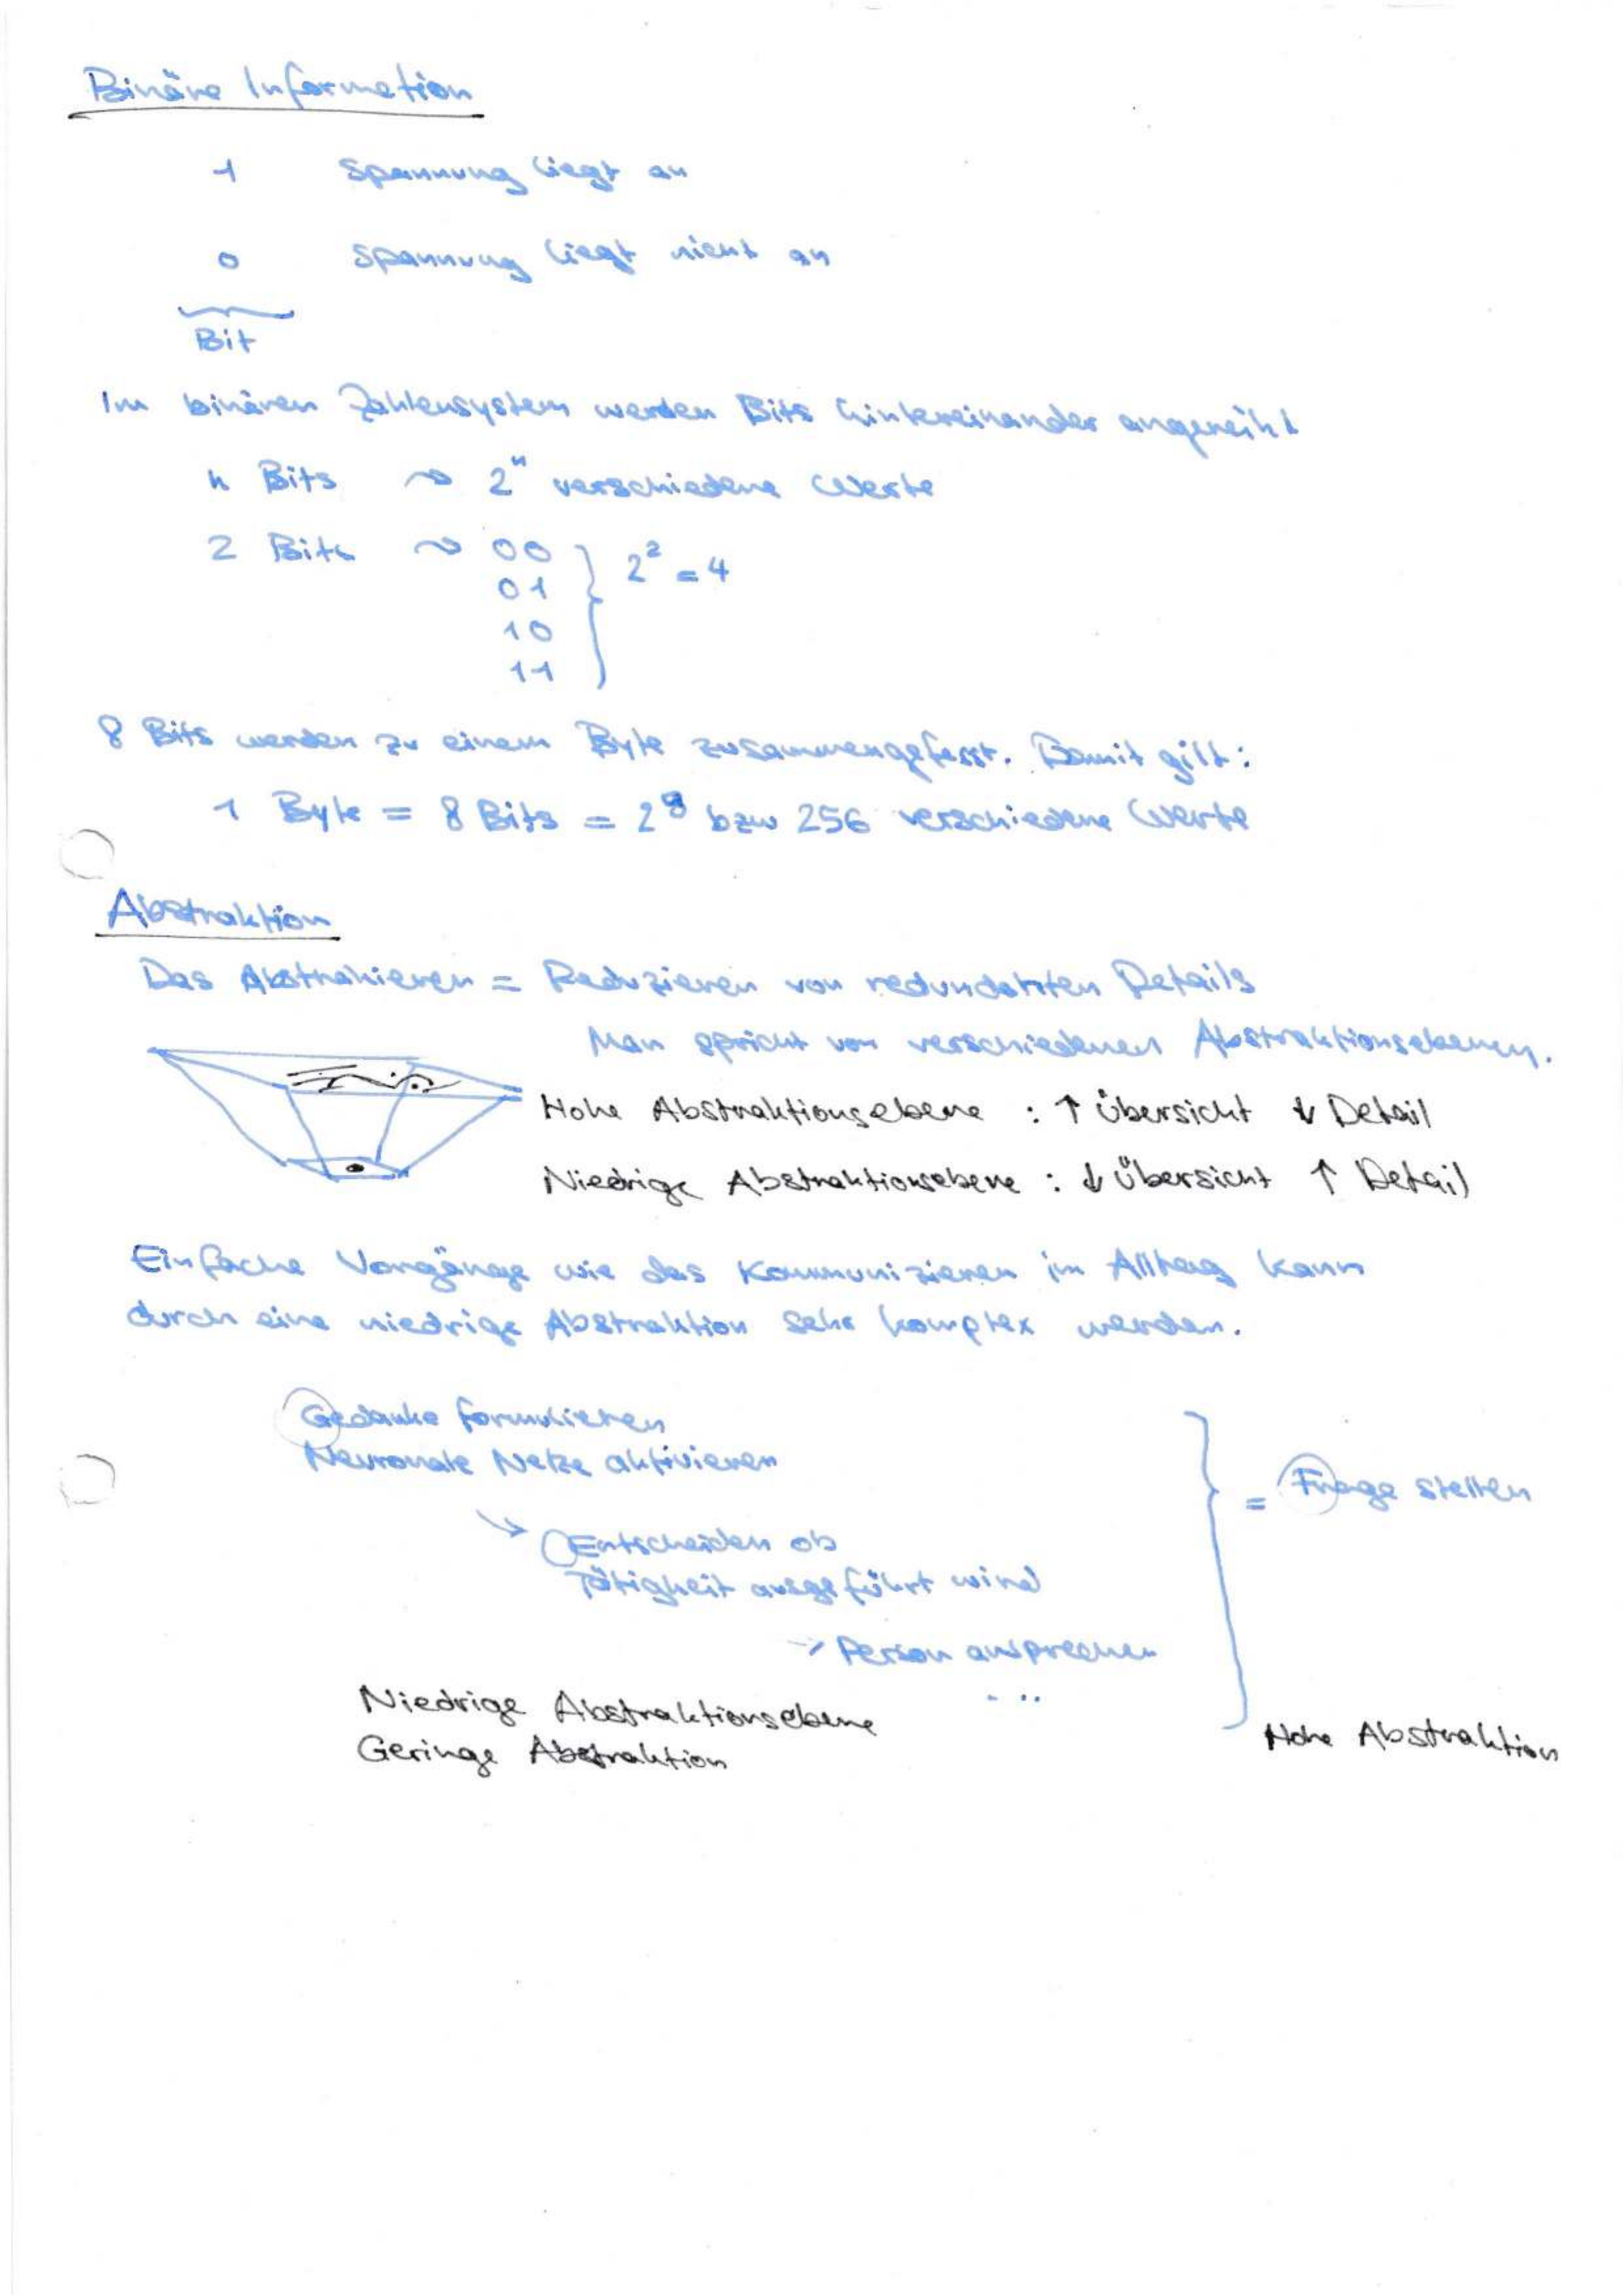 Binäre Information
1 Spannung liegt an
0 Spannung liegt nicht an
Bit
Im binären Zahlensystem werden Bits hintereinander angereiht
n Bits ~> 2^n verschiedene Werte
2 Bits ~> 00 } 2² = 4
01
10
11
8 Bits werden zu einem Byte zusammengefasst. Damit gilt:
1 Byte = 8 Bits = 2⁸ bzw 256 verschiedene Werte
Abstraktion
Das Abstrahieren = Reduzieren von redundanten Details
Man spricht von verschiedenen Abstraktionsebenen.
Hohe Abstraktionsebene : ↑ Übersicht ↓ Detail
Niedrige Abstraktionsebene : ↓ Übersicht ↑ Detail
Einfache Vorgänge wie das Kommunizieren im Alltag kann
durch eine niedrige Abstraktion sehr komplex werden.
Gedanke formulieren
Neuronale Netze aktivieren
= Frage stellen
→ Entscheiden ob
Tätigkeit ausgeführt wird
→ Person ansprechen
...
Niedrige Abstraktionsebene
Geringe Abstraktion
Hohe Abstraktion